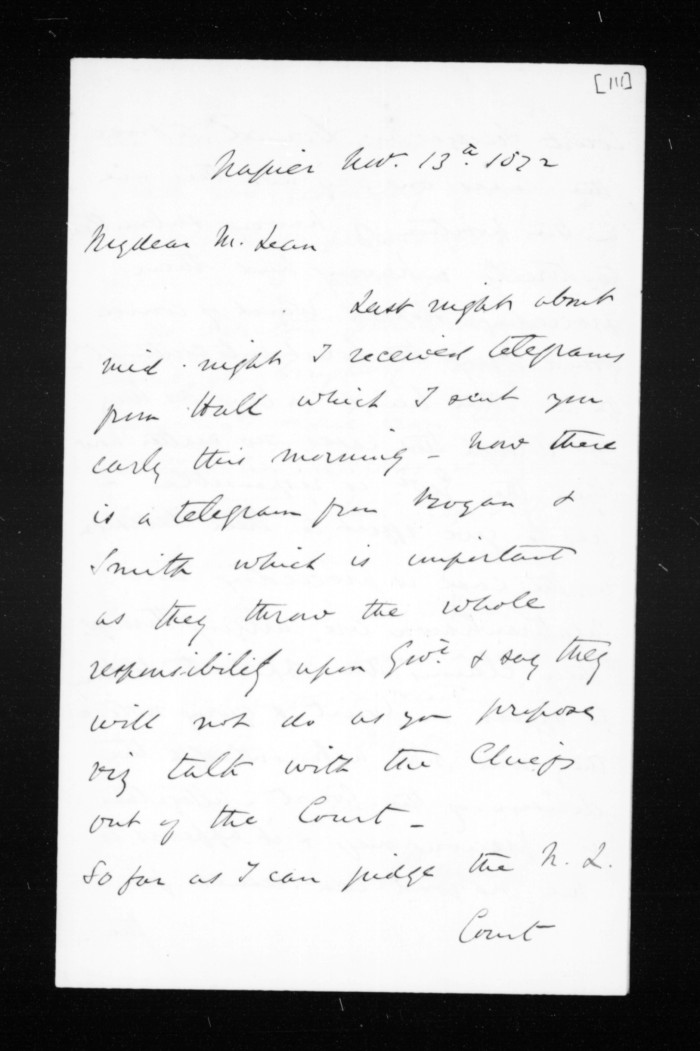 [111]
Napier Nov. 13th. 1872
My dear McLean
Last night about
mid-night I received telegrams
from Hall which I sent you
early this morning - Now there
is a telegram from Rogan &
Smith which is important
as they throw the whole
responsibility upon Govt. & say they
will not do as you propose
viz talk with the Chiefs
out of the Court -
So far as I can judge the N. L.
Court